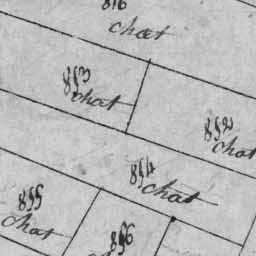 816
chat
853
chat
852
chat
854
chat
855
chat
856